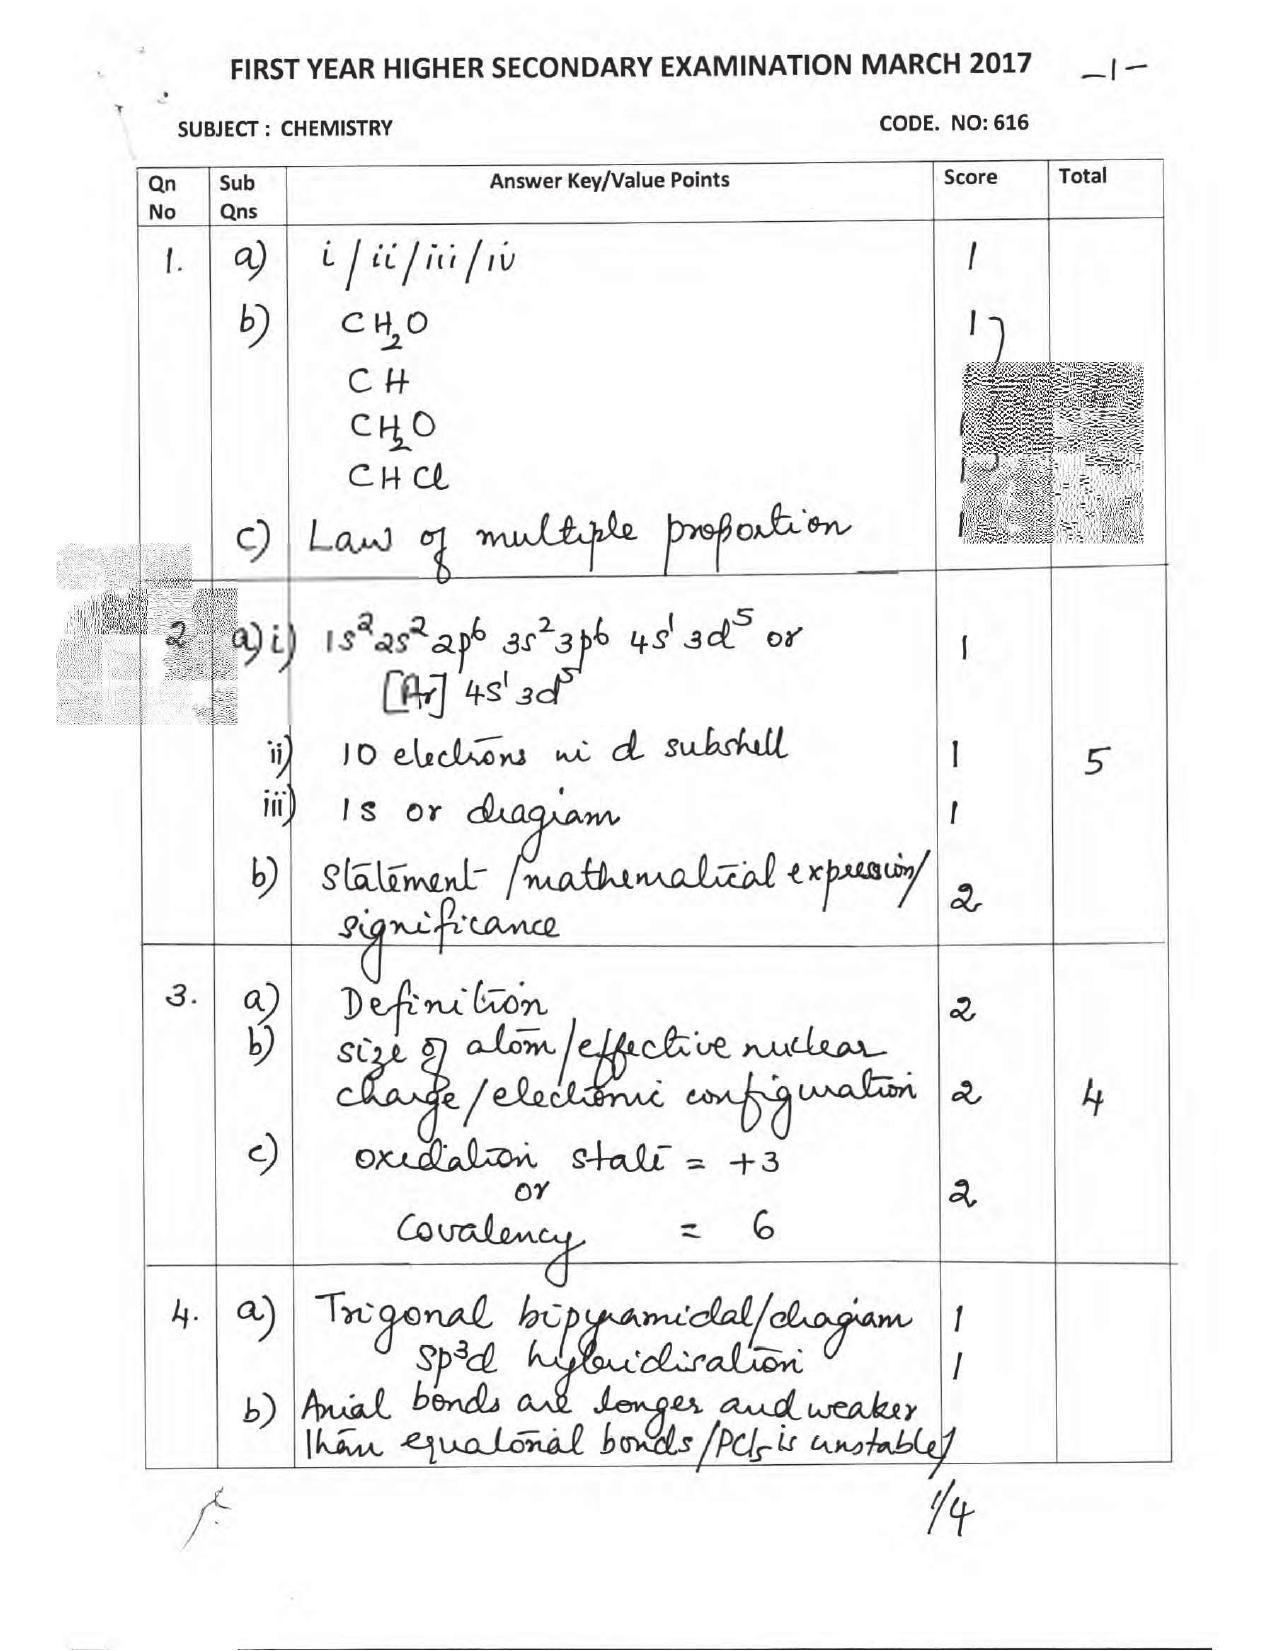 FIRST YEAR HIGHER SECONDARY EXAMINATION MARCH 2017 -1-
SUBJECT : CHEMISTRY CODE. NO: 616
Qn No Sub Qns Answer Key/Value Points Score Total
1. a) i/ii/iii/iv 1
b) CH₂O 1
CH
CH₂O
CHCl
c) Law of multiple proportion
2 a) i) 1s² 2s² 2p⁶ 3s² 3p⁶ 4s¹ 3d⁵ or 1
[Ar] 4s¹ 3d⁵
ii) 10 electrons in d subshell 1 5
iii) 1s or diagram 1
b) statement/mathematical expression/ 2
significance
3. a) Definition 2
b) size of atom/effective nuclear
charge/electronic configuration 2 4
c) oxidation state = +3
or 2
Covalency = 6
4. a) Trigonal bipyramidal/diagram 1
sp³d hybridisation 1
b) Axial bonds are longer and weaker
than equatorial bonds/PCl₅ is unstable/
1/4